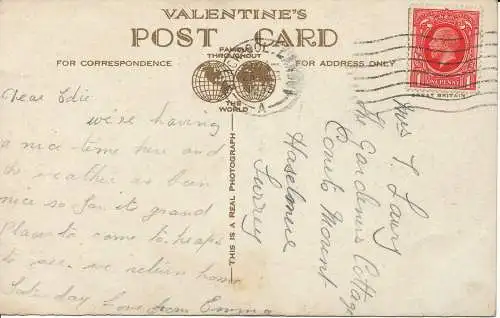 VALENTINE'S
POST CARD
FOR CORRESPONDENCE
FAMOUS
THROUGHOUT
THE
WORLD
FOR ADDRESS ONLY
THIS IS A REAL PHOTOGRAPH
ONE PENNY
GREAT BRITAIN
Dear Edie
we're having
a nice time here and
the weather as been
nice so far its grand
place to come to heaps
to see. we return home
Saturday Love from Emma
Mrs T. Lawry
The Gardeners Cottage
Mount
Haslemere
Surrey